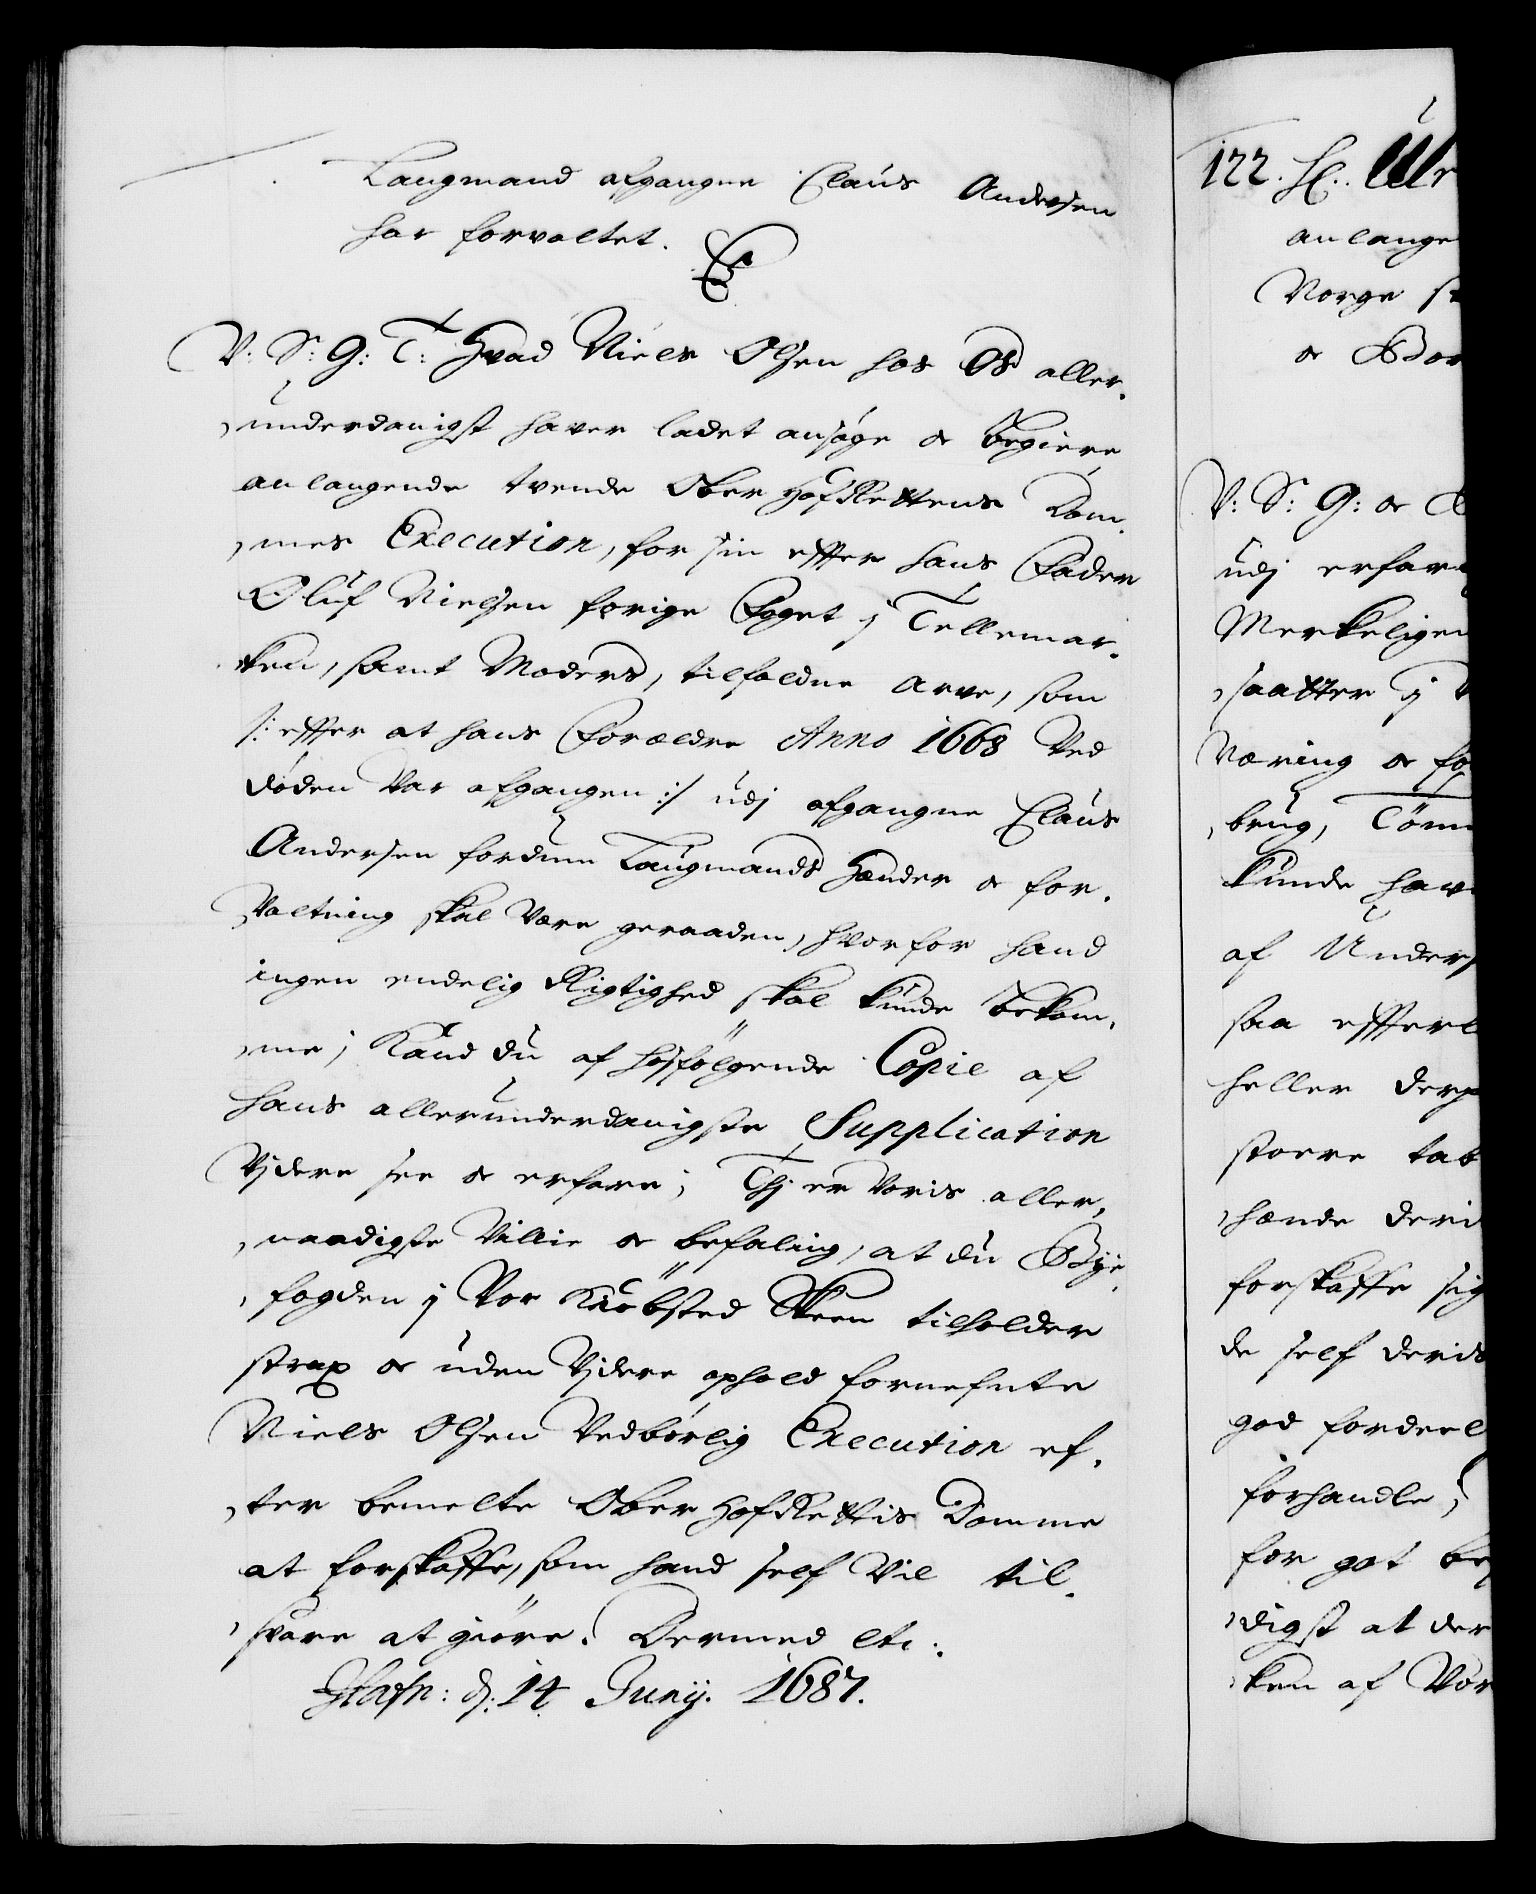 Laugmand afgangne Claus Andersen
har forvaltet.
V: S: G: T: Hvad Niels Olsen hos Os aller-
underdanigst haver ladet ansøge oc begiere,
anlangende tvende Ober HofRettens Dom-
mes Execution, for sin effter hans Fader
Oluf Nielsen forige Foget j Tellemar-
ken, samt Moders, tilfaldne arve, som
/: effter at hans Forældre Anno 1668 Ved
døden Var afgangen :/ udj afgangne Claus
Andersen fordum Laugmands Hænder oc for-
Valtning skal Være geraaden, hvorfor hand
ingen endelig Rigtighed skal kunde bekom-
me; Kand du af hosfölgende Copie af
hans allerunderdanigste Supplication
Vjdere see oc erfare; Thj er Voris aller-
naadigste Villie oc befaling, at du Bÿe-
fogden j Vor Kiöbsted Skeen tilholder
strax oc uden Vjdere ophold fornefnte
Niels Olsen Vedbörlig Execution ef-
ter bemelte Ober HofRettis Domme
at forskaffe, som hand self Vil til-
svare at giöre. Dermed etc:
Hafn: d. 14 Junij. 1687.
122.
anlange
Norge
oc Bor
V: S: G: oc
udj erfar
Merkeligen
saatter j
Næring oc fo
brug, Töm
kunde hav
af Unders
saa effterl
heller der
stoere tab
hænde deri
forskaffe sig
de self deris
god fordeel
forhandle;
for got be
digst at der
ken af Vor